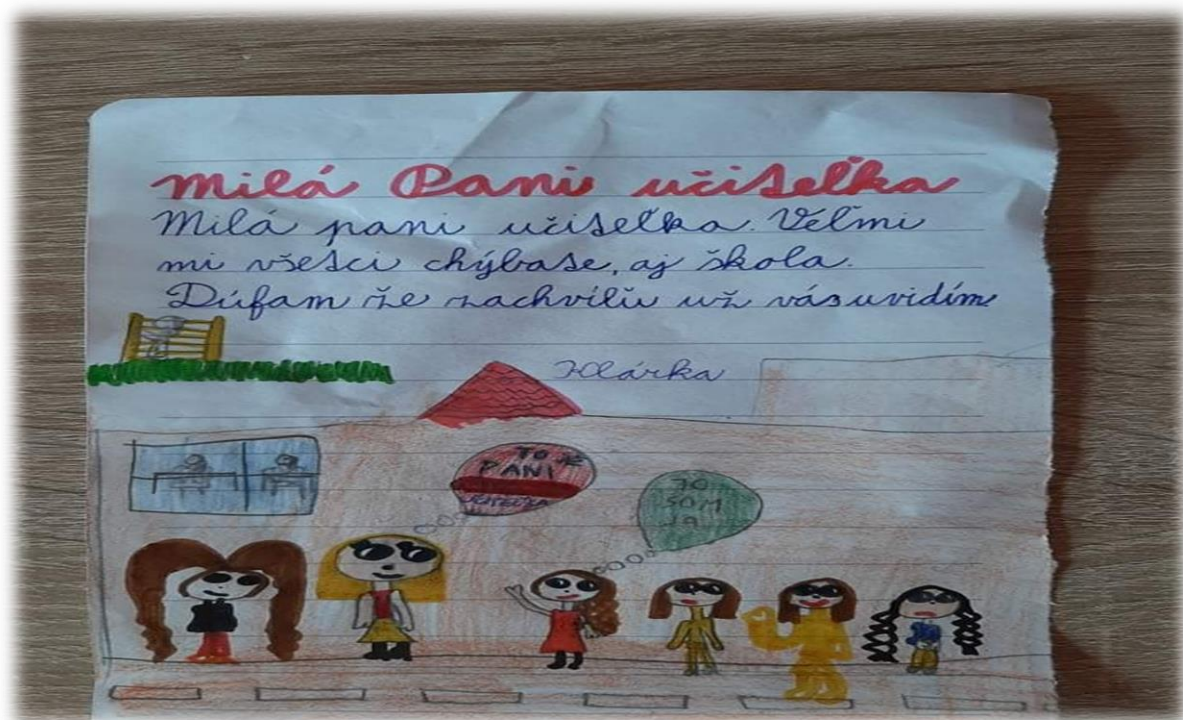 Milá Pani učiteľka
Milá pani učiteľka. Veľmi
mi všetci chýbate, aj škola.
Dúfam že zachvíliu už vás uvidím
Klárka
TO JE
PANI
UČITEĽKA
TO
SOM
JA